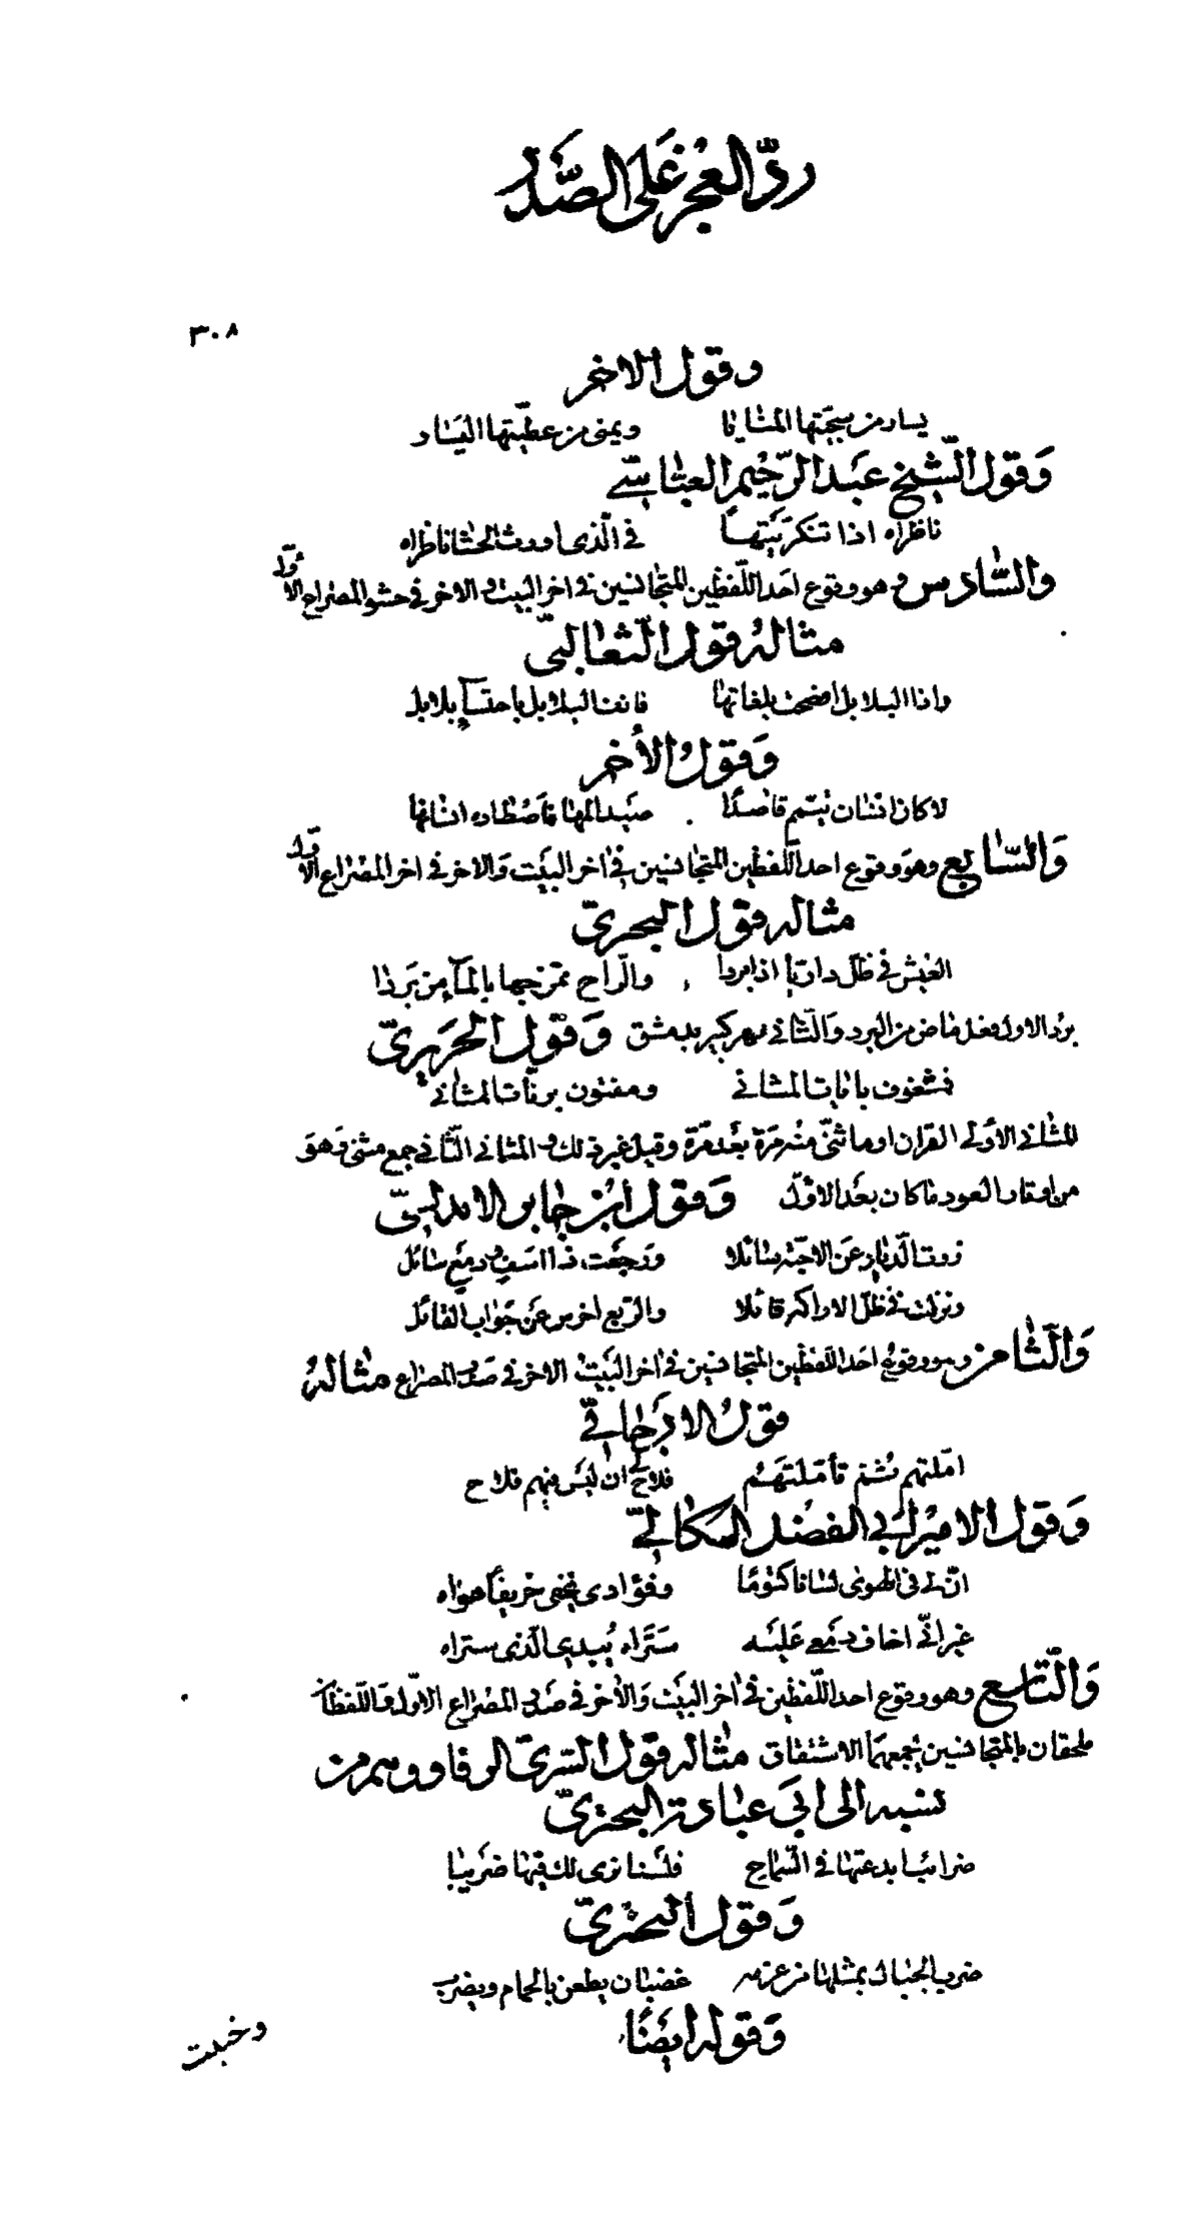 ردّ العجز على الصَّدر
٣٠٨
وقول الاخر
يسار من سجيّتها المنايا ويمنى من عطيّتها اليسار
وَقول الشّيخ عَبد الرّحيم العبّاسيّ
ناظراه اذا تنكر تيهاً في الّذي اورث الحشا ناظراه
والسّادس وهو وقوع احَد اللّفظين المتجانسين في اخر البيت والاخر في حشو المصراع الاوّل
مثاله قول الثّعالبيّ
واذا البلابل افصحت بلغاتها فانف البلابل باحتسآءِ بلابل
وَقولُ الأخر
لا كان انسان تيمّم قاصدًا صيد المها فاصْطاده انسانها
وَالسّابع وهوَ وقوع احد اللّفظين المتجانسين في اخر البيَت وَالاخر في اخر المصْراع الاوّل
مثاله قول البحتريّ
العيش في ظلّ داريّا اذا بردا والرّاح تمزجها بالمآءِ من بَردَا
بردا الاول فعل ماض من البرد وَالثّاني نهر كبير بدمشق وَقول الحَريريّ
فمشغوف بايات المثاني ومفتون برنّات المثاني
المثاني الاوْلى القران او ما ثنّي منْه مَرة بعْد مَرّة وقيل غير ذلك والمثاني الثّاني جمع مثنى وَهوَ
من اوتار العود ما كان بعْد الاوّل وَقول ابْن جابر الاندلسيّ
زرت الدّيار عَن الاحبّة سائلا وَرجعْت ذا اسَفٍ ودمعٍ سائل
ونزلت في ظلّ الاراكة قائلا والرّبع اخرس عَن جَواب القائل
وَالثّامن وهو وقوع احَد اللّفظين المتجانسين في اخر البيَت والاخر في صَدر المصراع مثالهُ
قولُ الارّجانيّ
امّلتهم ثمّ تأمّلتهَم فلاحَ ان ليْس فيهم فلاح
وَقول الامير ابي الفضل الميكاليّ
انّ لي في الهوى لسانا كتومًا وفؤادي يخفى حريق هواه
غير انّي اخاف دمْعي عَليْه ستَراه يُبدي الّذي ستراه
وَالتّاسع وهو وقوع احد اللّفظين في اخر البيَت وَالاخر في صَدر المصْراع الاوّل وَاللّفظان
ملحقان بالمتجانسين يجمعهمَا الاشتقاق مثاله قول السّريّ الرفا ووهم من
نسبه الى ابي عبادة البحتريّ
ضرائب ابدعتها في السّماح فلسْنا نرى لك فيها ضريبا
وَقول البحتريّ
ضرب الجبال بمثلها من عزمه غضبان يطعن بالحمام ويضرب
وَقوله ايضًا